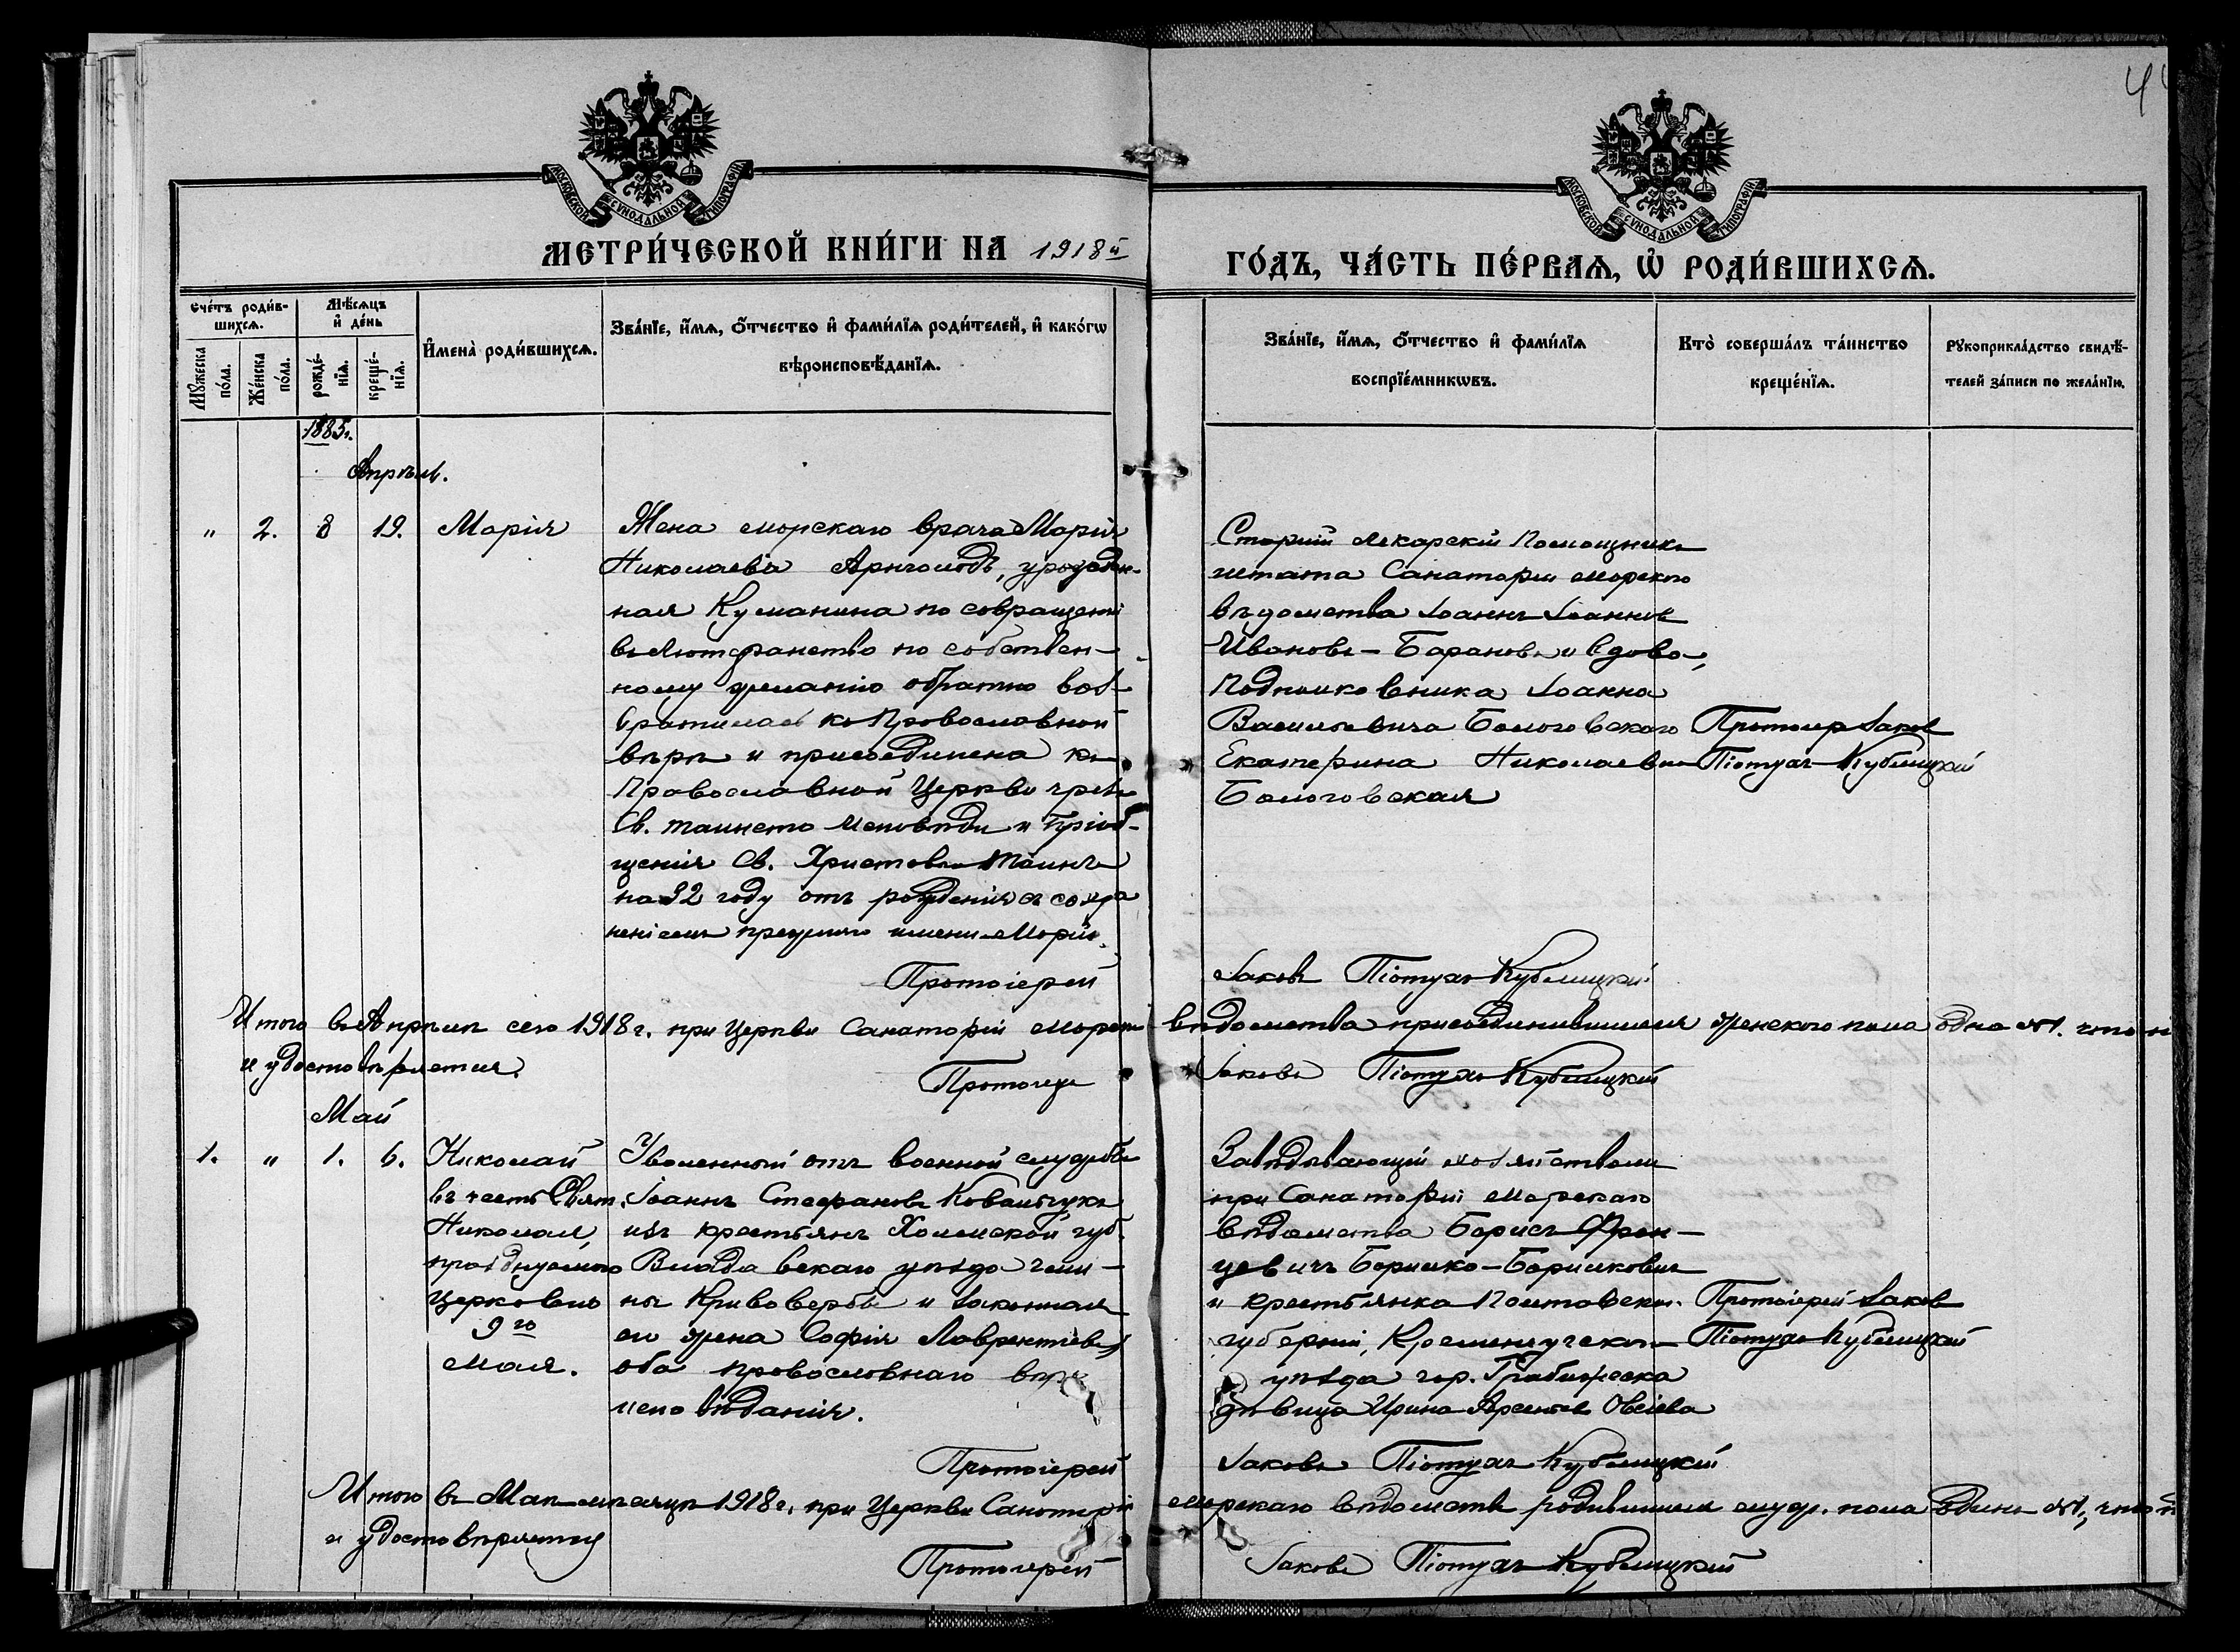 4
МОСКОВСКОЙ СѴНОДАЛЬНОЙ ТИПОГРАФІИ
МОСКОВСКОЙ СѴНОДАЛЬНОЙ ТИПОГРАФІИ
МЕТРИ́ЧЕСКОЙ КНИ́ГИ НА 1918й
ГО́ДЪ, ЧА́СТЬ ПЕ́РВАѦ, Ѡ҆ РОДИ́ВШИХСѦ.
Сче́тъ роди́вшихсѧ.
Мꙋ́жеска по́ла.
Же́нска по́ла.
Мѣ́сѧцъ и҆ де́нь
рожде́нїѧ.
креще́нїѧ.
И҆мена̀ роди́вшихсѧ.
Зва́нїе, и҆́мѧ, ѻ҆́тчество и҆ фами́лїѧ роди́телей, и҆ како́гѡ
вѣроисповѣ́данїѧ.
Зва́нїе, и҆́мѧ, ѻ҆́тчество и҆ фами́лїѧ
воспрїе́мникѡвъ.
Кто̀ соверша́лъ та́инство
креще́нїѧ.
Рꙋкоприкла́дство свидѣ́-
телей за́писи по жела́нїю.
1885г.
Апрѣль.
" 2. 8 19. Марія
Жена морскаго врача Марія
Николаева Арнгольдъ, урожден-
ная Куманина по совращеніи
въ Лютеранство по собствен-
ному желанію обратно воз-
вратилась къ Православной
вѣрѣ и присоединена къ
Православной Церкви чрезъ
Св. таинство Исповѣди и Пріоб-
щенія Св. Христовыхъ Таинъ
на 32 году отъ рожденія съ сохра
неніемъ прежняго имени Марія.
Старшій лекарскій Помощникъ
штата Санаторіи морского
вѣдомства Іоаннъ Іоанновъ
Ивановъ-Барановъ и вдова
Подполковника Іоанна
Васильевича Бологовского
Екатерина Николаевна
Бологовская
Протоіер Іаковъ
Піотухъ-Кублицкій
Протоіерей Іаковъ Піотухъ-Кублицкій
Итого въ Апрѣлѣ сего 1918 г. при Церкви Санаторіи морского вѣдомства присоединившихся женского пола одна №1. что
и удостовѣряется.
Протоіер Іаковъ Піотухъ-Кублицкій
Май
1. " 1. 6. Николай
въ честь Свят.
Николая,
празднуемого
Церковью
9го
мая.
Уволенный отъ военной службы
Іоаннъ Стефановъ Ковальчукъ
изъ крестьянъ Холмской губ.
Влодавскаго уѣзда гмины
Кривовербы и законная
его жена Софія Лаврентіева
оба православнаго вѣро
исповѣданія.
Завѣдывающій хозяйствомъ
при Санаторіи морскаго
вѣдомства Борисъ Фран-
цевичъ Боришко-Боришковичъ
и крестьянка Полтавской
губерніи, Кременчугскаго
уѣзда гор.
дѣвица Ирина Арсеньева Овсіева
Протоіерей Іаковъ
Піотухъ-Кублицкій
Протоіерей Іаковъ Піотухъ-Кублицкій
Итого въ Маѣ мѣсяцѣ 1918 г. при Церкви Санаторіи морскаго вѣдомства родившихся муж. пола одинъ №1, что
и удостовѣряется
Протоіерей Іаковъ Піотухъ-Кублицкій